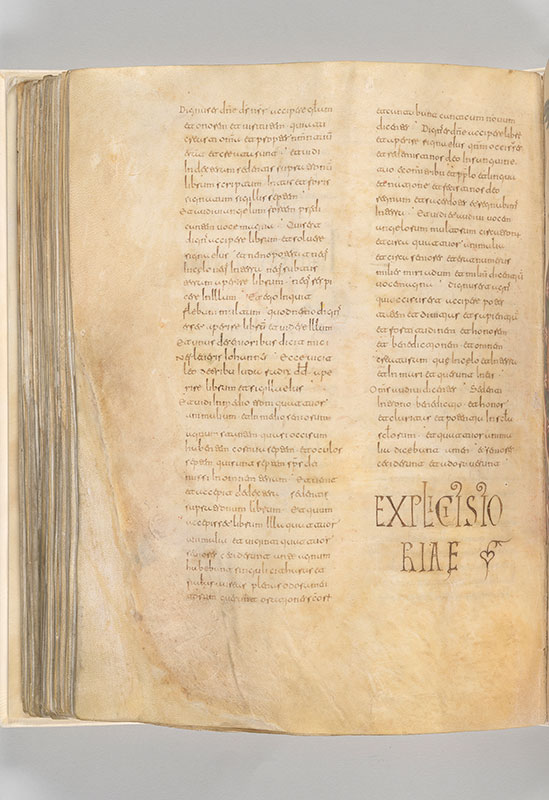 Dignus es dñe ds nsr accipere glam
et onorem et uirtutem . quia tu
creasti omia et propter
erant et creata sunt . Et uidi
In dextera sedentis supra tronum
librum scriptum Intus et foris
signatum sigillis septem
Et uidi angelum fortem predi
cantem uoce magna . Quis est
dign accipere librum et soluere
signa eius . et nemo poterat neqs
In celo neqs In terra neqs subtus
terram aperire librum . neqs respi
cere Illum . Et ego
flebam multum quod nemo dign
esset aperire libru et uidere Illum
Et unus de senioribus dicit mici
Ne fleueris Iohannes . Ecce uicit
leo de tribu Iuda radix dd . ape
rire librum et sigilla eius
Et uidi In medio troni quatuor
animalium et In medio seniorum
agnum stantem quasi occisum
habentem cornua septem et oculos
septem qui sunt septem sps di
missi In omnem terram . Et uenit
et accepit de dextera sedentis
supra tronum librum . Et quum
accepisset librum Illa quatuor
animalia et uiginti quatuor
seniores ceciderunt ante agnum
habentes singuli citharas et
fialas aureas plenas odoramen
torum que sunt orationes scor
et cantabant canticum nouum
dicentes . Dignus es dñe accipere libru
et aperire signa eius qnm occisus es
et redemisti nos deo In sanguine
tuo ex omni tribu et pplo et lingua
et natione . et fecisti nos deo
regnum et sacerdotes et regnabimus
In terra . Et audiui uocem
angelorum multorum circu troni
et circu quatuor animalia
et circu seniores et erat numerus
milies miriadum et milia dicentiu
uoce magna . dignus est agn
qui occisus est accipere potes
tatem et diuitias et sapientia
et fortitudinem et honorem
et benedictionem et omnem
creaturam que In celo et In terra
et In mari et que sunt In eis
Oms audiui dicentes . Sedenti
In trono benedictio et honor
et claritas et potestas In scla
sclorum . et quatuor anima
lia dicebant amen . et seniores
ceciderunt et adorauerunt
EXPLICIT ISTO
RIAE